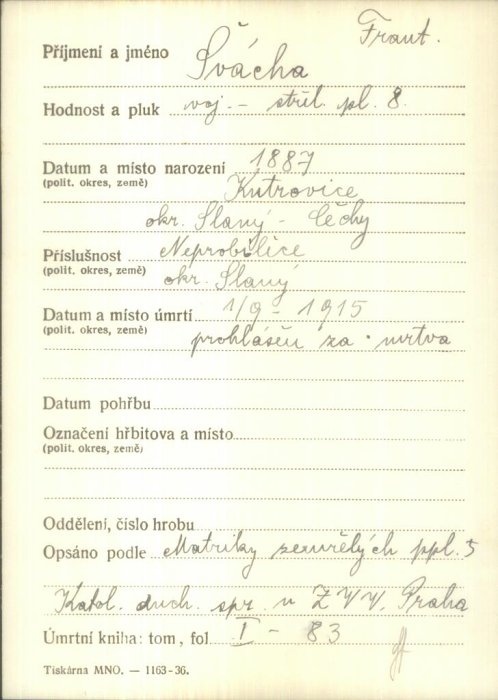 Frant.
Příjmení a jméno Švácha
Hodnost a pluk voj. - střel. pl. 8.
Datum a místo narození 1887
(polit. okres, země) Kutrovice
okr. Slaný - Čechy
Příslušnost Neprobilice
(polit. okres, země) okr. Slaný
Datum a místo úmrtí 1/9 - 1915
(polit. okres, země) prohlášen za mrtva
Datum pohřbu
Označení hřbitova a místo
(polit. okres, země)
Oddělení, číslo hrobu
Opsáno podle Matriky zemřelých ppl. 5
Katol. duch. spr. u Z.V.V. Praha
Úmrtní kniha: tom, fol. I - 83
Tiskárna MNO. — 1163-36.